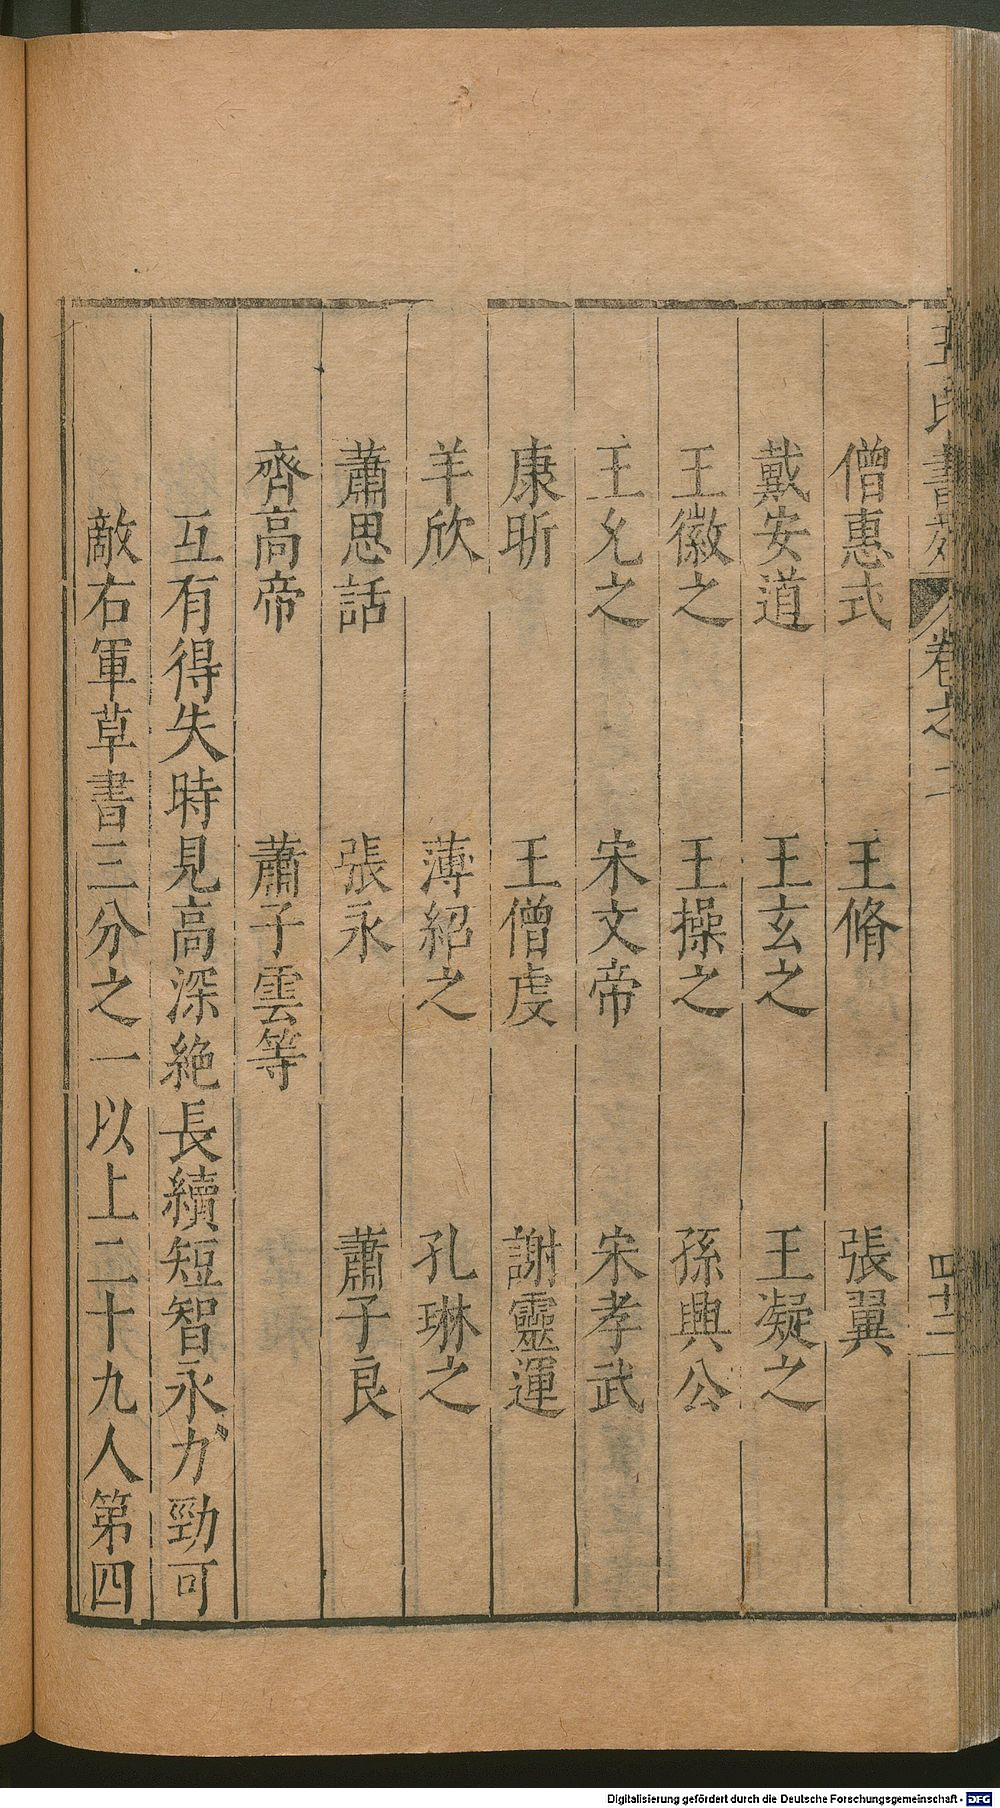 王氏書苑 卷之二 四十二
僧惠式 王脩 張翼
戴安道 王玄之 王凝之
王徽之 王操之 孫興公
王允之 宋文帝 宋孝武
康昕 王僧虔 謝靈運
羊欣 薄紹之 孔琳之
蕭思話 張永 蕭子良
齊高帝 蕭子雲等
互有得失時見高深絶長續短智永力勁可
敵右軍草書三分之一以上二十九人第四
Digitalisierung gefördert durch die Deutsche Forschungsgemeinschaft - DFG